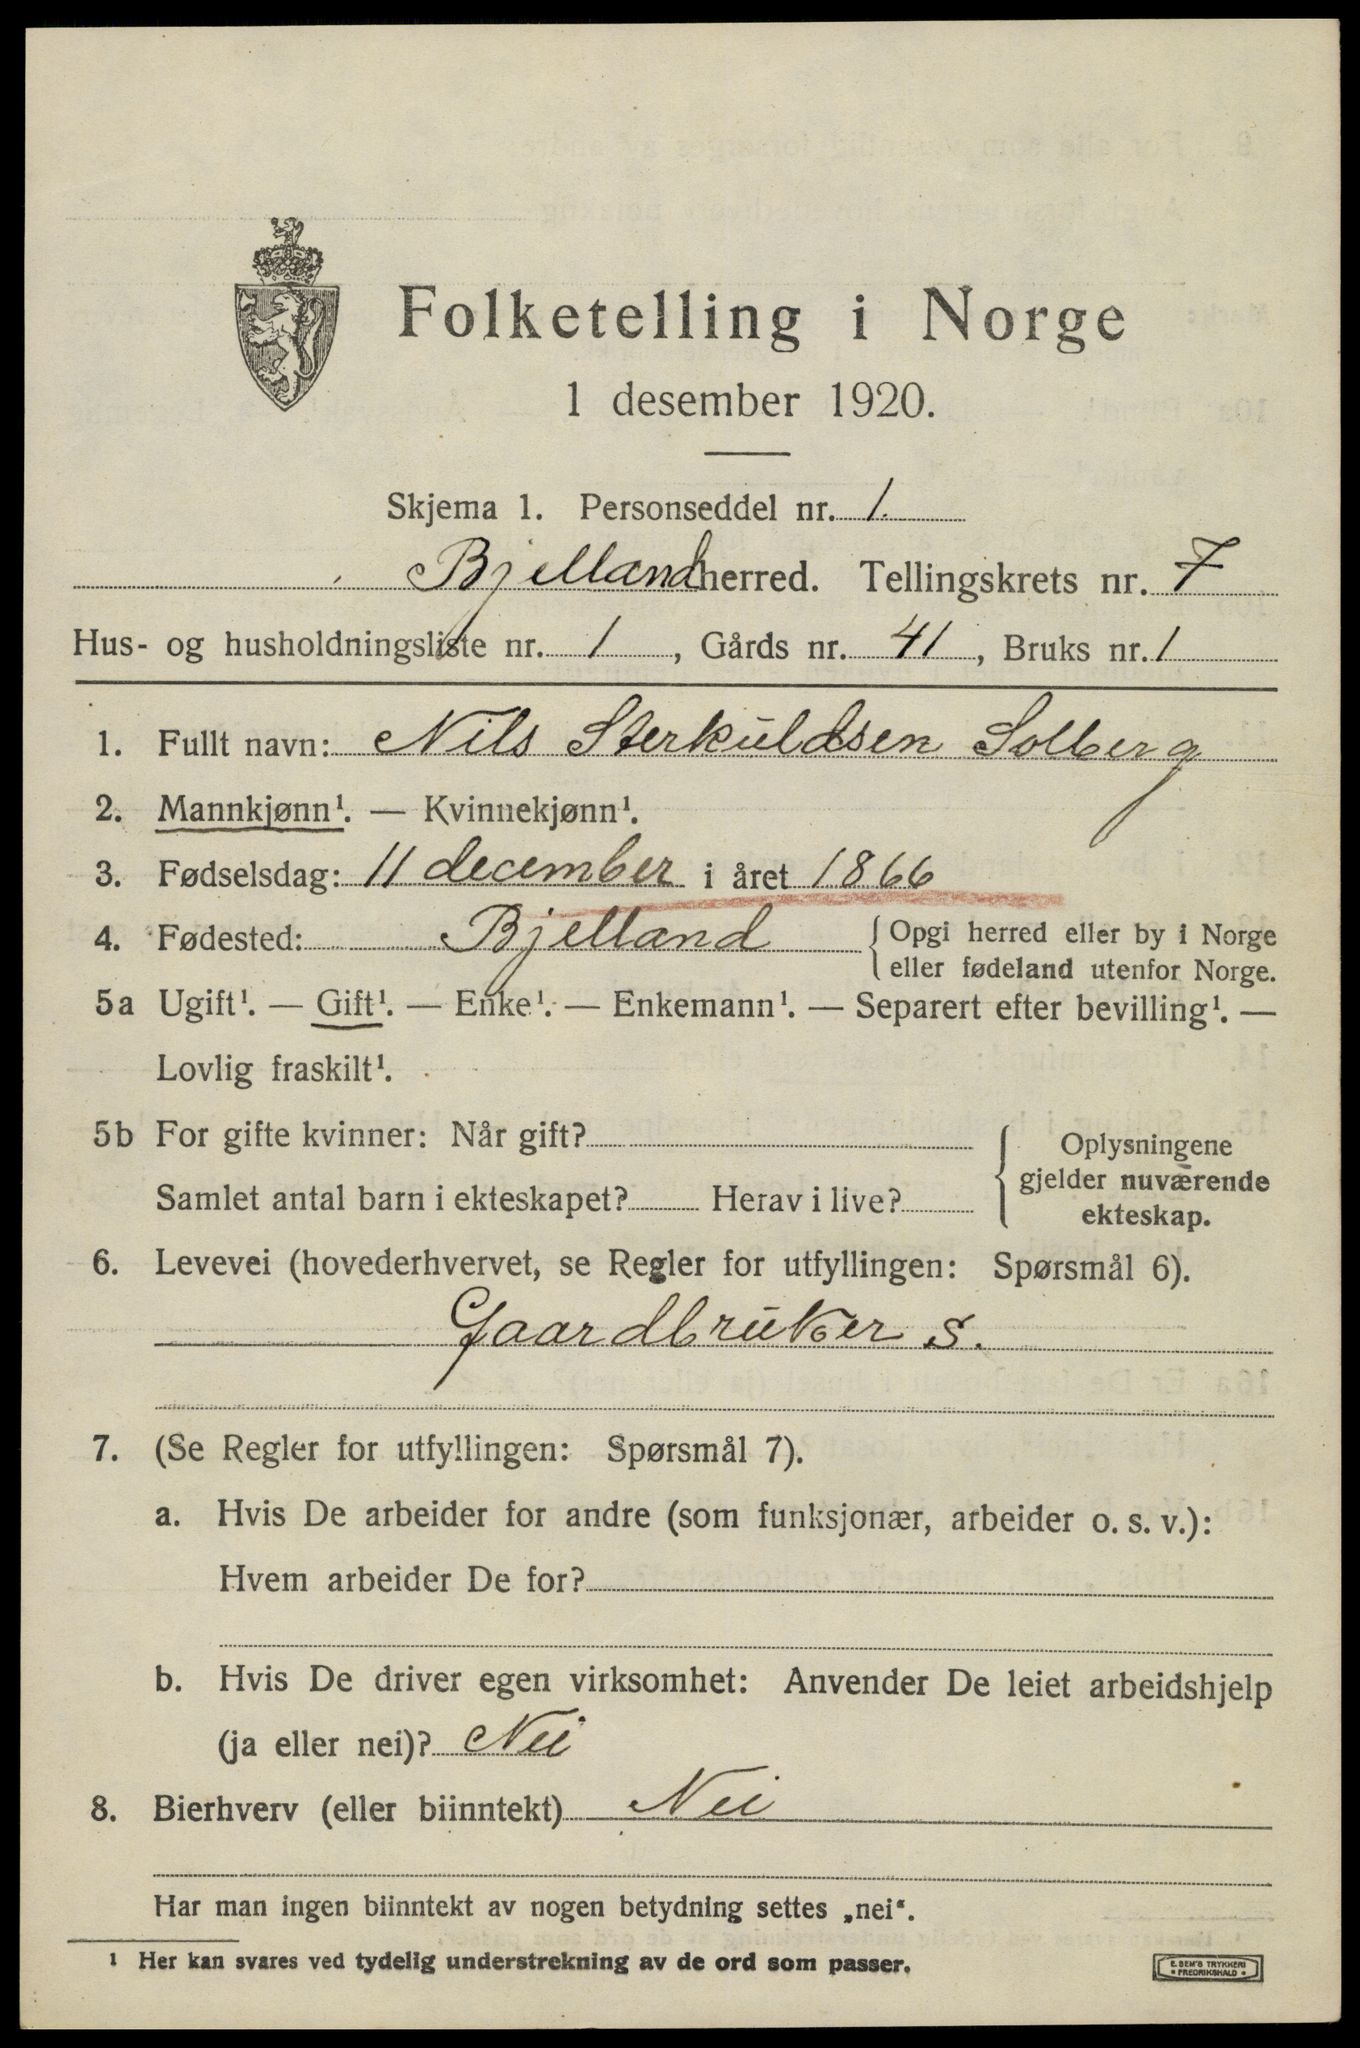 Folketelling i Norge
1 desember 1920.
Skjema 1. Personseddel nr. 1.
Bjelland herred. Tellingskrets nr. 7
Hus- og husholdningsliste nr. 1, Gårds nr. 41, Bruks nr. 1
1. Fullt navn: Nils Sterkuldsen Solberg
2. Mannkjønn¹. — Kvinnekjønn¹.
3. Fødselsdag: 11 december i året 1866
4. Fødested: Bjelland { Opgi herred eller by i Norge
eller fødeland utenfor Norge.
5a Ugift¹. — Gift¹. — Enke¹. — Enkemann¹. — Separert efter bevilling¹. —
Lovlig fraskilt¹.
5b For gifte kvinner: Når gift?
Samlet antal barn i ekteskapet? Herav i live?
{ Oplysningene
gjelder nuværende
ekteskap.
6. Levevei (hovederhvervet, se Regler for utfyllingen: Spørsmål 6).
Gaardbruker s.
7. (Se Regler for utfyllingen: Spørsmål 7).
a. Hvis De arbeider for andre (som funksjonær, arbeider o. s. v.):
Hvem arbeider De for?
b. Hvis De driver egen virksomhet: Anvender De leiet arbeidshjelp
(ja eller nei)? Nei
8. Bierhverv (eller biinntekt) Nei
Har man ingen biinntekt av nogen betydning settes „nei“.
¹ Her kan svares ved tydelig understrekning av de ord som passer.
E. SEM'S TRYKKERI
• FREDRIKSHALD •